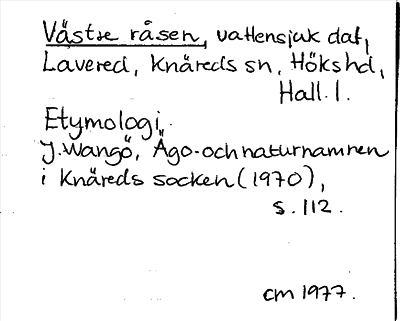 Västre råsen, vattensjuk dal,
Lavered, Knäreds sn, Höks hd,
Hall. l.
Etymologi.
J. Wangö, Ägo- och naturnamnen
i Knäreds socken (1970),
s. 112.
cm 1977.